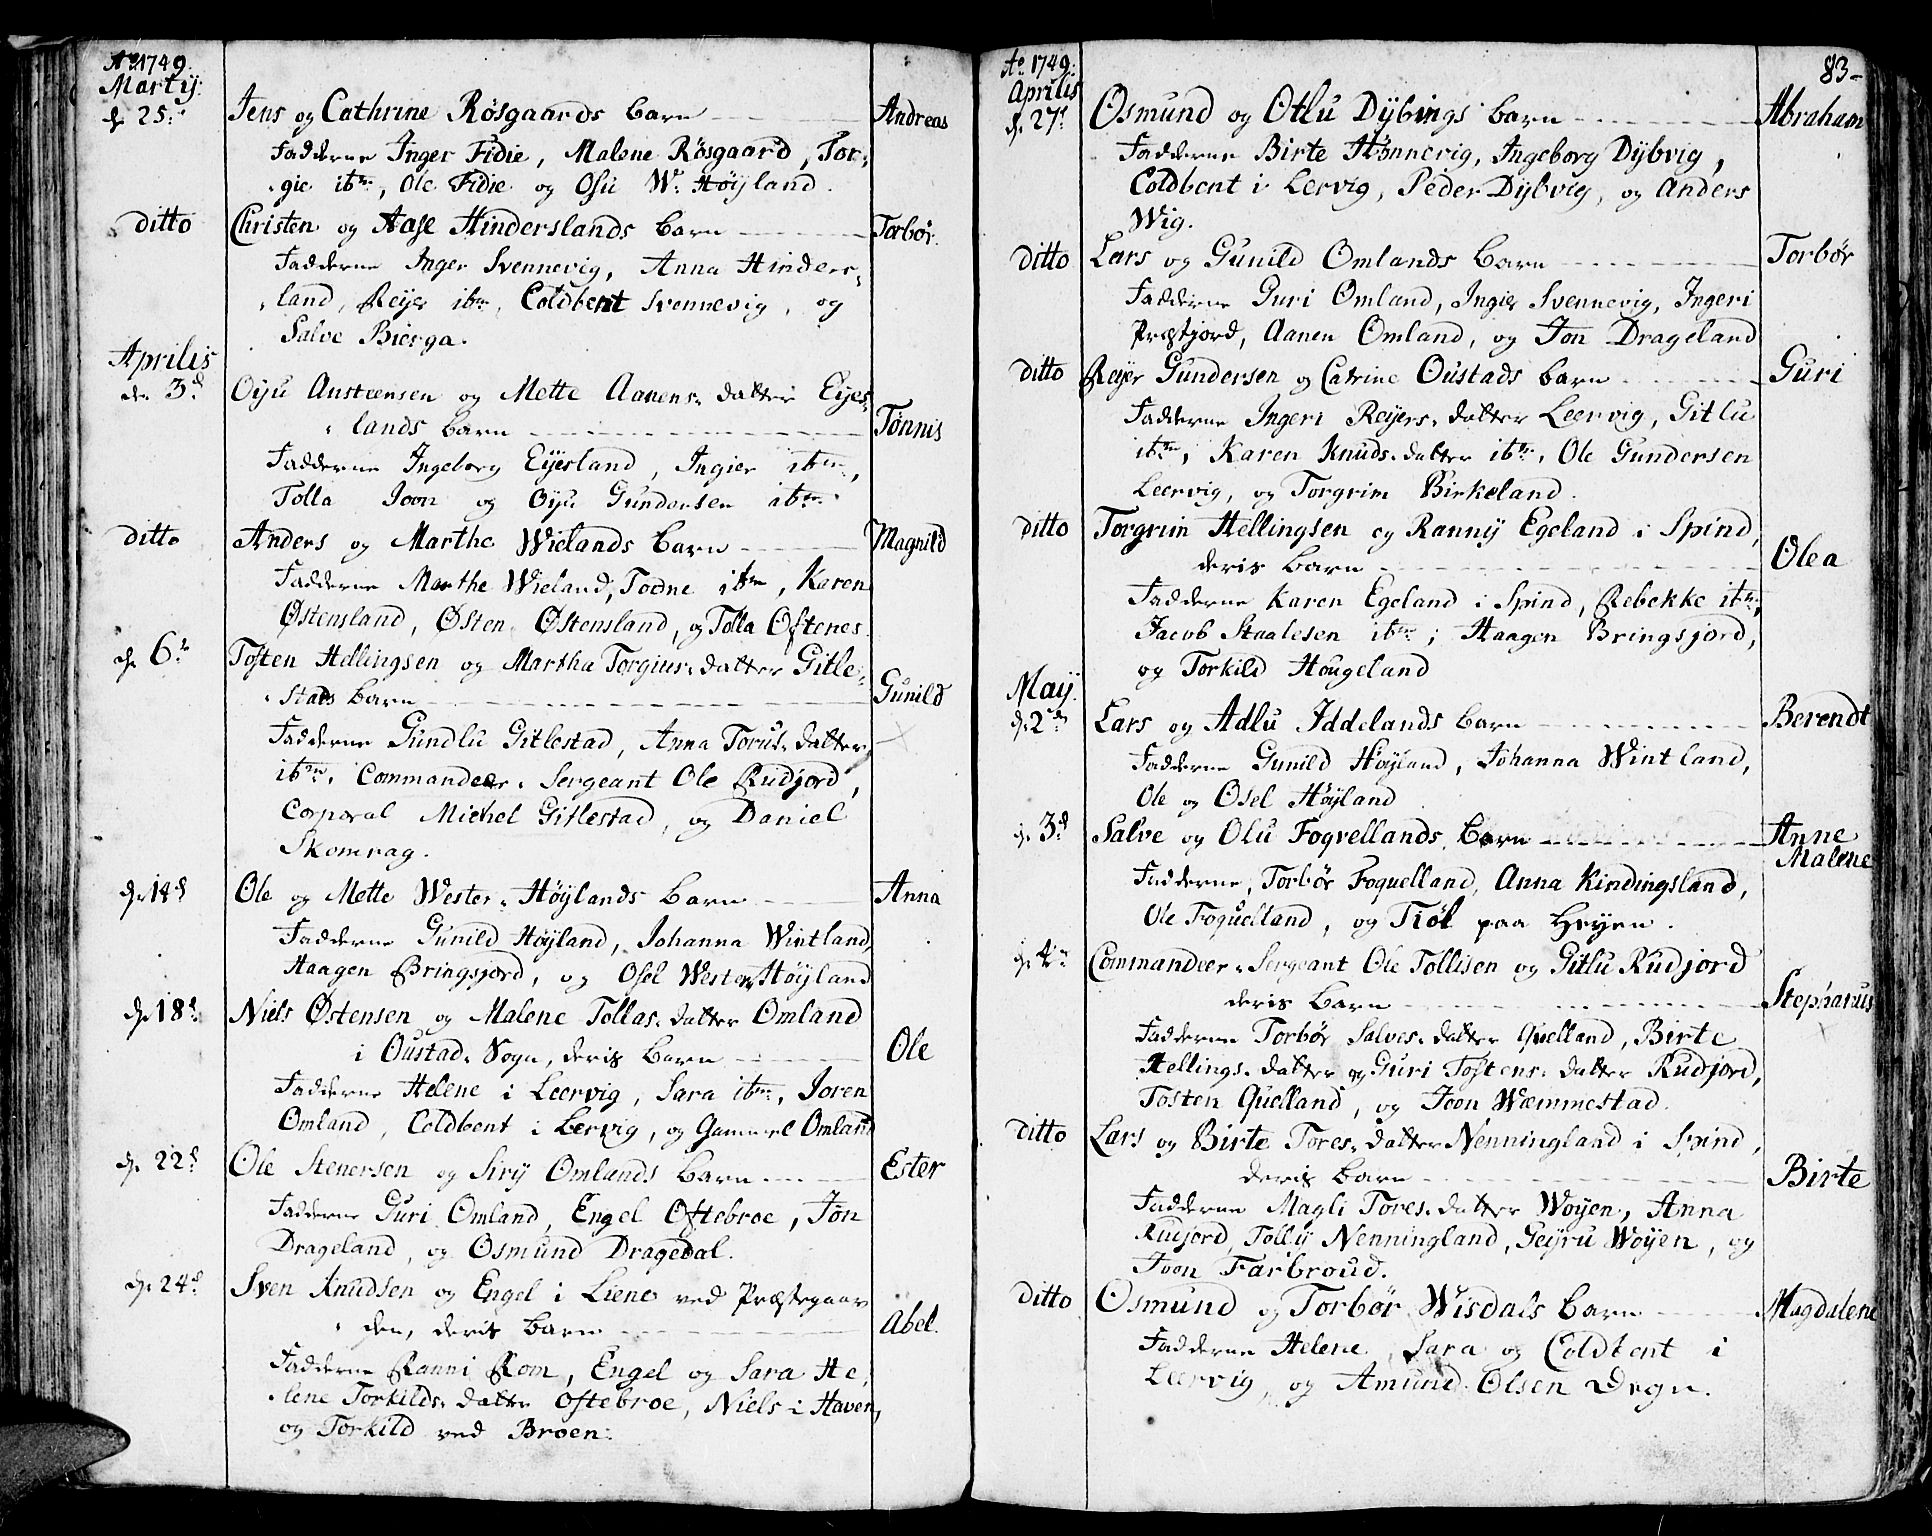 Aᵒ 1749.
Martij.
d. 25.ᵗ Jens og Cathrine Røsgaards barn Andreas
Fadderne Inger Fidie, Malene Røsgaard, Tor-
gie ibᵐ, Ole Fidie og Osu W. Høyland.
ditto Christen og Aase Hinderslands barn Torbør.
Fadderne Inger Svennevig, Anna Hinders-
land, Reyer ibᵐ, Coldbent Svennevig, og
Salve Bierga.
Aprilis
de 3.ᵈ Oyu Anstensen og Mette Aanens-datter Eyes-
lands barn Tønnis
Fadderne Ingeborg Eyersland, Ingier ibᵐ,
Tolla Joon og Oyu Gundersen ibᵐ.
ditto Anders og Marthe Wielands barn Magnild
Fadderne Marthe Wieland, Todne ibᵐ, Karen
Østensland, Østen Østensland, og Tolla Oftenes.
d. 6.ᵗ Tosten Hellingsen og Martha Torgius-datter Gitle-
stads barn Gunild
Fadderne Gundlu Gitlestad, Anna Torus-datter
ibᵐ, Commandeer-Sergeant Ole Rudjord,
Corporal Michel Gitlestad, og Daniel
Skomrag.
d. 14.ᵈ Ole og Mette Wester-Høylands barn Anna
Fadderne Gunild Høyland, Johanna Wintland,
Haagen Bringsjord, og Osel Wester-Høyland
d. 18.ᵈ Niels Østensen og Malene Tollas-datter Omland
i Oustad-Sogn, deris barn Ole
Fadderne Helene i Leervig, Sara ibᵐ, Joren
Omland, Coldbent i Lervig, og Gammel Omland
d. 22.ᵈ Ole Stenersen og Sirij Omlands barn Ester
Fadderne Guri Omland, Engel Oftebroe, Jon
Drageland, og Osmund Dragedal.
d. 24.ᵈ Sven Knudsen og Engel i Liene ved Præstegaar-
den, deris barn Abel.
Fadderne Ranni Rom, Engel og Sara He-
lene Torkilds-datter Oftebroe, Niels i Haven,
og Torkild ved Broen.
Aᵒ 1749. 83
Aprilis
d. 27.ᵗ Osmund og Otlu Dybings barn Abraham
Fadderne Birte Hønnevig, Ingeborg Dybvig,
Coldbent i Lervig, Peder Dybvig, og Anders
Wig.
ditto Lars og Gunild Omlands barn Torbør
Fadderne Guri Omland, Ingier Svennevig, Ingeri
Præstjord, Aanen Omland, og Jon Drageland
ditto Reyer Gundersen og Catrine Oustads barn Guri
Fadderne Ingeri Reyers-datter Leervig, Gitlu
ibᵐ, Karen Knuds-datter ibᵐ, Ole Gundersen
Leervig, og Torgrim Birkeland.
ditto Torgrim Hellingsen og Rannij Egeland i Spind,
deris barn Olea
Fadderne Karen Egeland i Spind, Rebekke ibᵐ,
Jacob Staalesen ibᵐ, Haagen Bringsjord,
og Torkild Hougeland
Maij.
d. 2.ᵈ Lars og Adlu Iddelands barn Berendt
Fadderne Gunild Høyland, Johanna Wintland,
Ole og Osel Høyland
d. 3.ᵈ Salve og Olu Foqvellands barn Anne
Malene
Fadderne, Torbør Foquelland, Anna Kindingsland,
Ole Foquelland, og Tiøl paa Heyen.
d. 4.ᵗ Commandeer-Sergeant Ole Tollisen og Gitlu Rudjord
deris barn Stephanus
Fadderne Torbør Salves-datter Quelland, Birte
Hellings-datter og Guri Tostens-datter Rudjord,
Tosten Quelland, og Joon Wæmmestad.
ditto Lars og Birte Tores-datter Nenningland i Spind,
deris barn Birte
Fadderne Magli Tores-datter Woyen, Anna
Rudjord, Tollij Nenningland, Geyru Woyen, og
Joon Farbroud.
ditto Osmund og Torbør Wisdals barn Magdalene
Fadderne Helene, Sara og Coldbent i
Leervig, og Amund Olsen Degn.